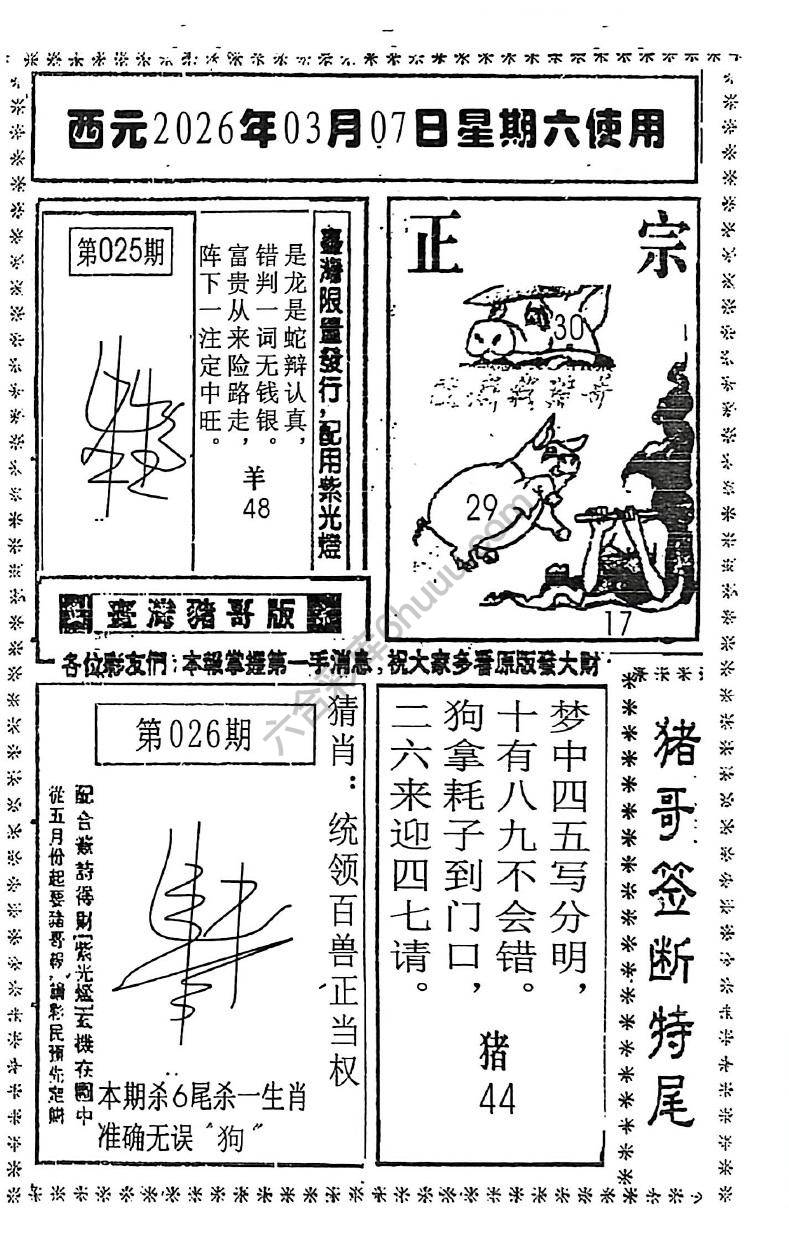 西元2026年03月07日星期六使用
第025期
是龙是蛇辩认真,
错判一词无钱银。
富贵从来险路走,
阵下一注定中旺。
羊
48
臺灣限量發行,配用紫光燈
正宗
30
29
17
臺灣豬哥版
各位彩友們:本報掌握第一手消息,祝大家多看原版發大財
第026期
猜肖:统领百兽正当权
配合簽詩得財紫光燈玄機在圖中
從五月份起要豬哥報,讓彩民預先定購
本期杀6尾杀一生肖
准确无误“狗”
梦中四五写分明,
十有八九不会错。
狗拿耗子到门口,
二六来迎四七请。
猪
44
猪哥签断特尾
六合彩库6huuu.com